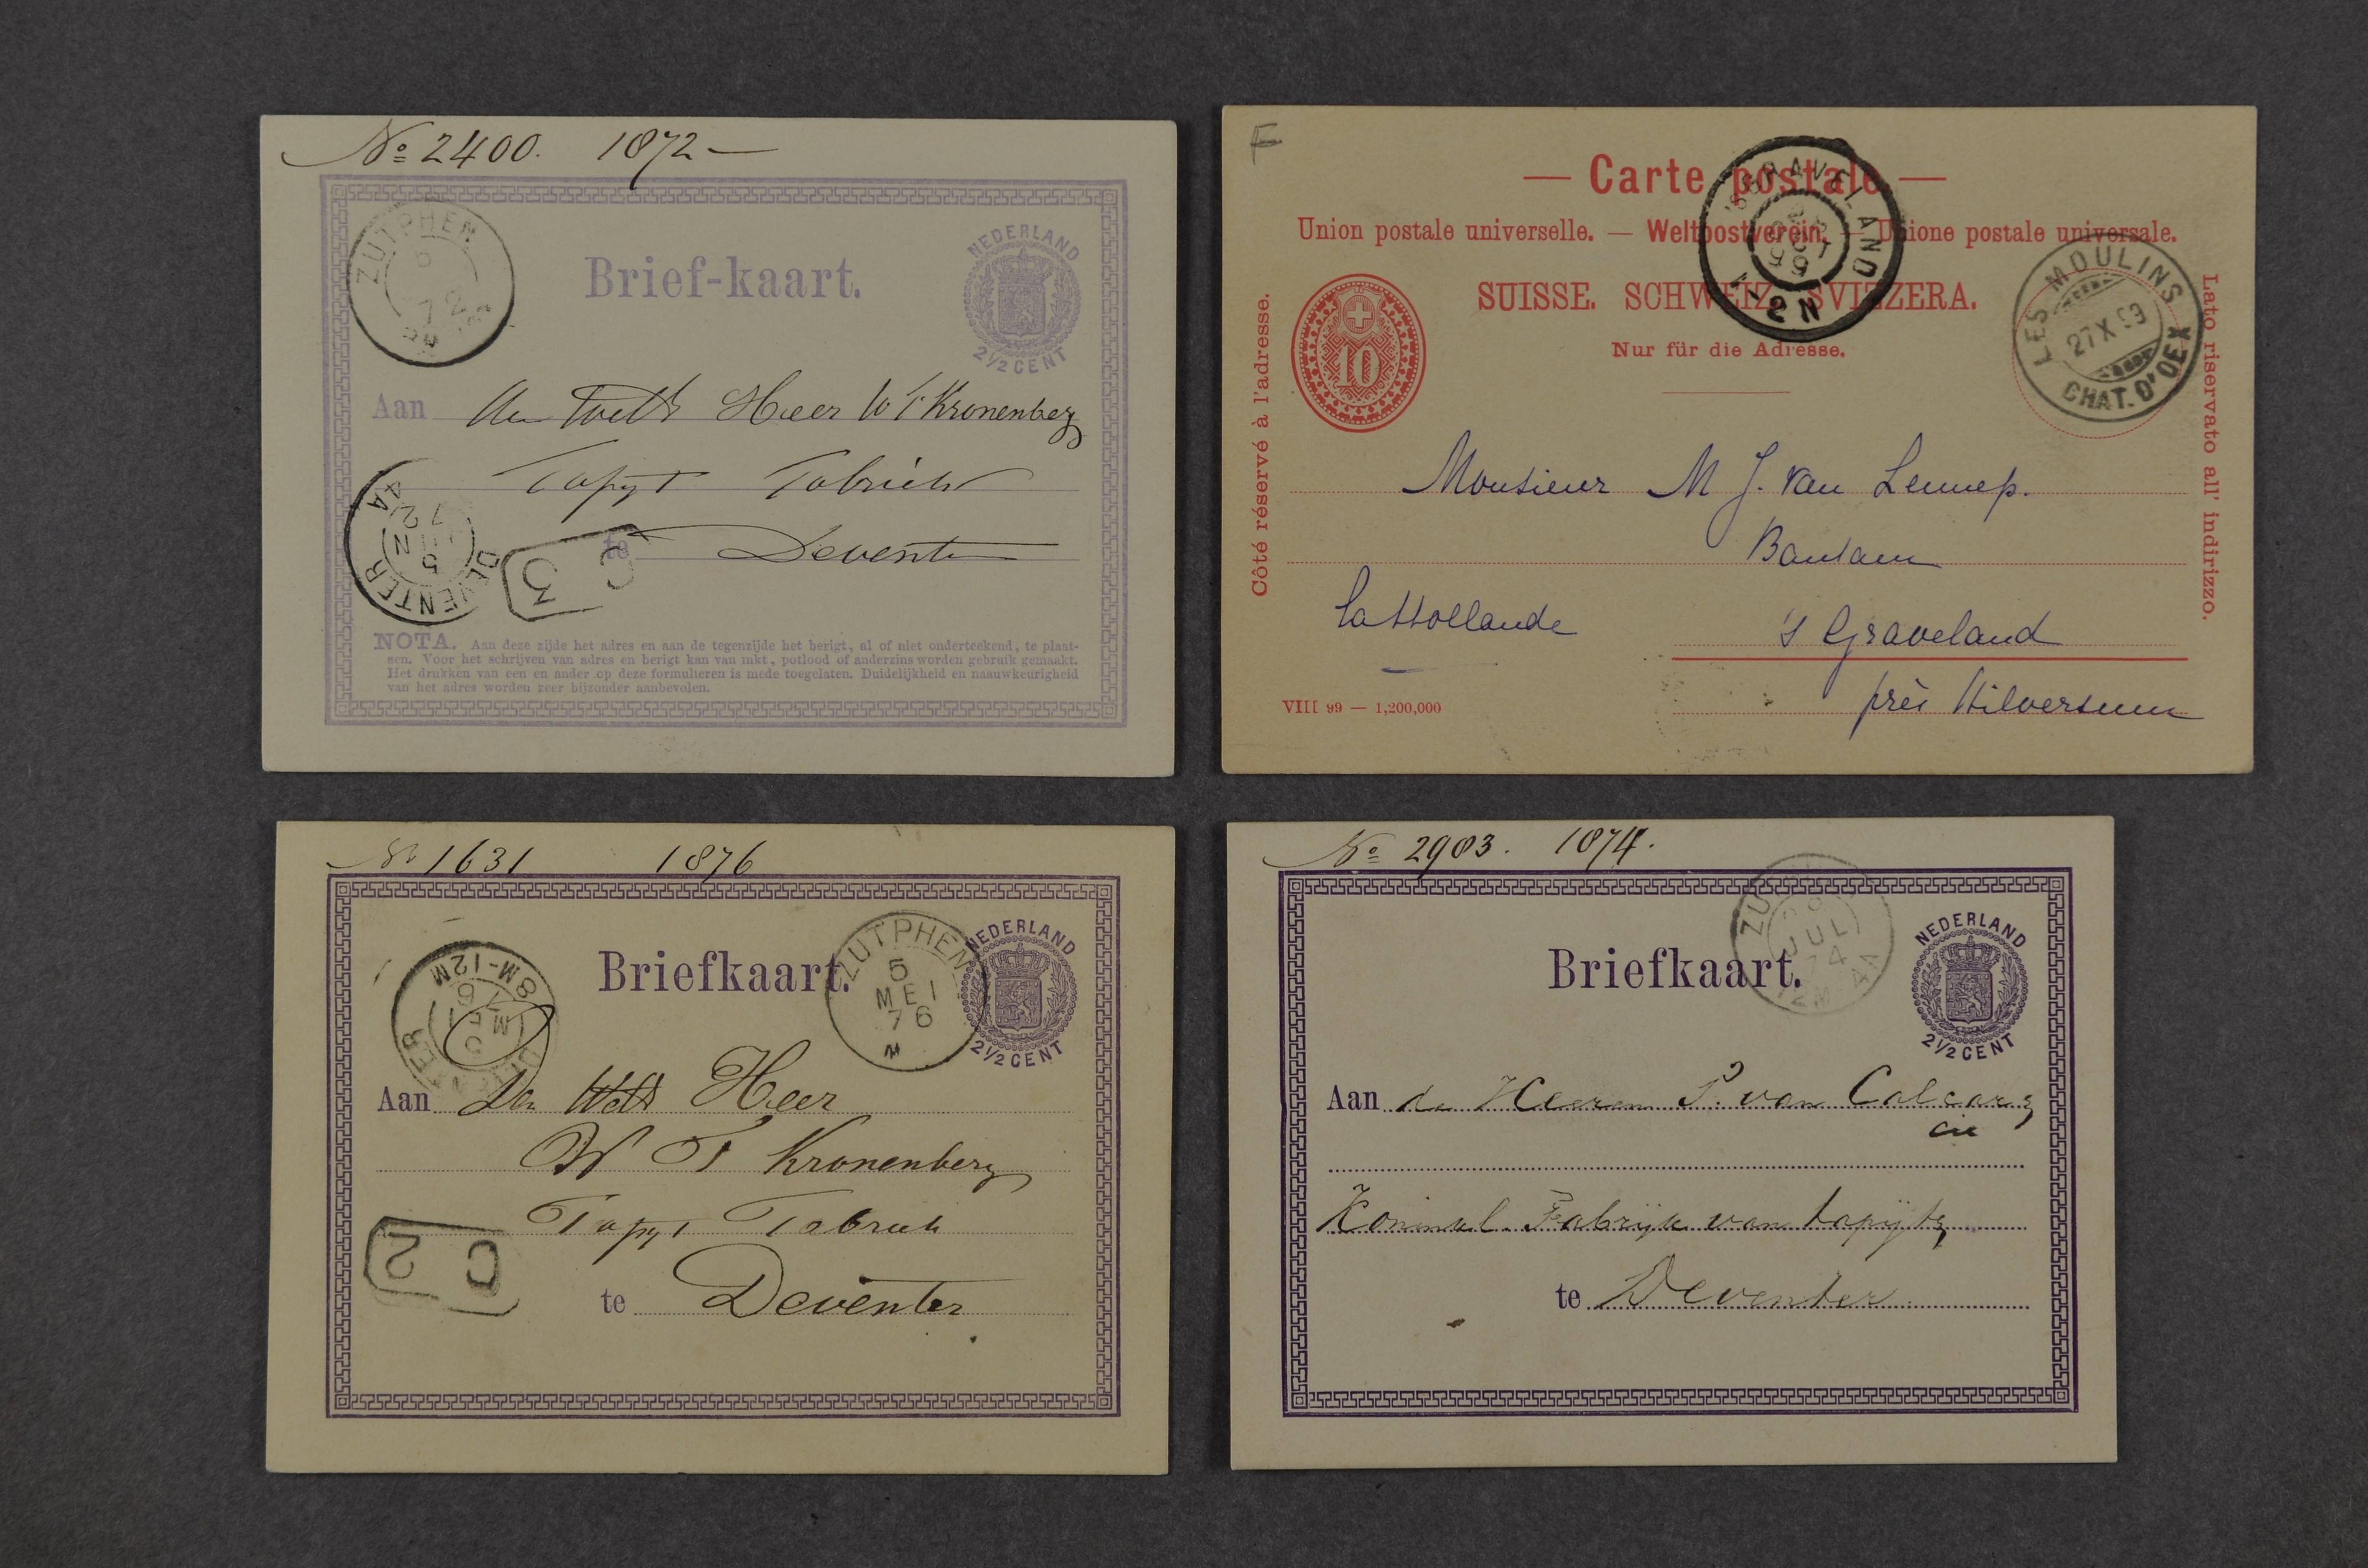 No 2400. 1872 —
ZUTPHEN
5
72
NEDERLAND
2½ CENT
Brief-kaart.
Aan
Heer W F Kronenberg
Tapyt Fabriek
te Deventer
DEVENTER
5
72
4A
C 3
NOTA. Aan deze zijde het adres en aan de tegenzijde het berigt, al of niet onderteekend, te plaat-
sen. Voor het schrijven van adres en berigt kan van inkt, potlood of anderzins worden gebruik gemaakt.
Het drukken van een en ander op deze formulieren is mede toegelaten. Duidelijkheid en naauwkeurigheid
van het adres worden zeer bijzonder aanbevolen.
F
— Carte postale —
Union postale universelle. — Weltpostverein. — Unione postale universale.
SUISSE. SCHWEIZ. SVIZZERA.
Nur für die Adresse.
'S GRAVELAND
10
LES MOULINS
27 X 99
CHAT. D'OEX
Côté réservé à l'adresse.
Lato riservato all' indirizzo.
Monsieur M J. van Lennep.
Bantam
la Hollande
's Graveland
près Hilversum
VIII 99 — 1,200,000
No 1631 1876
Briefkaart.
ZUTPHEN
5
MEI
76
NEDERLAND
2½ CENT
DEVENTER
5
MEI
76
8M-12M
Aan Den Heer
W F Kronenberg
Tapyt Fabriek
te Deventer
C 2
No 2983. 1874.
JUL
74
12M-4A
NEDERLAND
2½ CENT
Briefkaart.
Aan de Heeren P. van Calcar &
cie
Koninkl. Fabrijk van tapijt
te Deventer